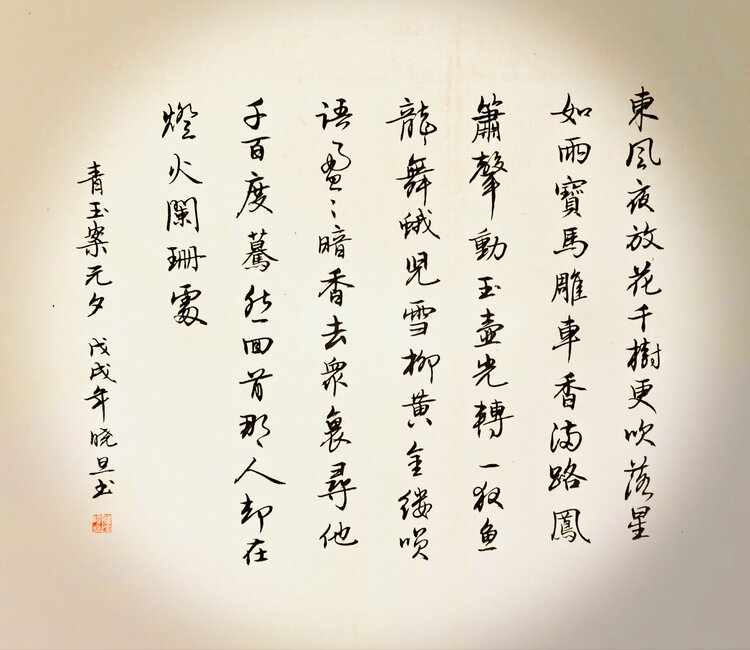 東風夜放花千樹更吹落星
如雨寶馬雕車香滿路鳳
簫聲動玉壺光轉一夜魚
龍舞蛾兒雪柳黃金縷咲
語盈〻暗香去衆裏尋他
千百度驀然回首那人却在
燈火闌珊處
青玉案元夕 戊戌年晓旦书